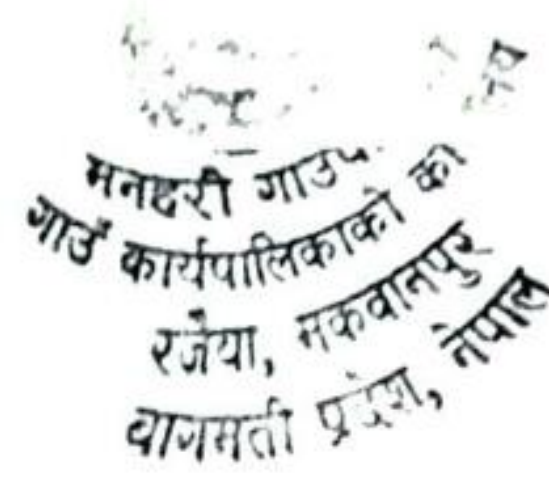 मनहरी गाउप
गाउँ कार्यपालिकाको का
रजैया, मकवानपुर
वागमती प्रदेश, नेपाल